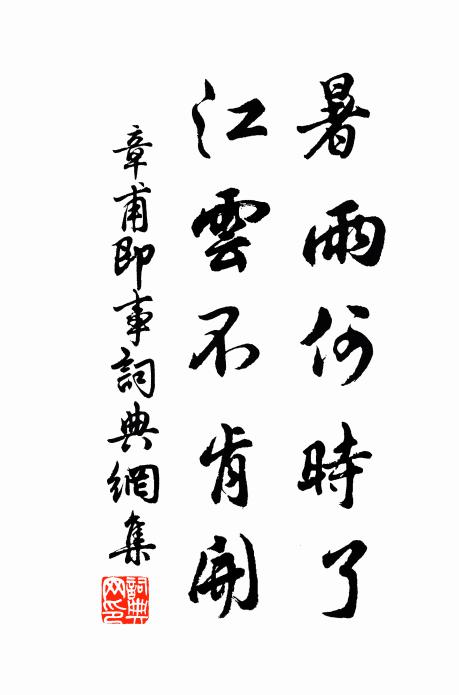 暑雨何時了
江雲不肯開
章甫即事詞典網集
詞典网印